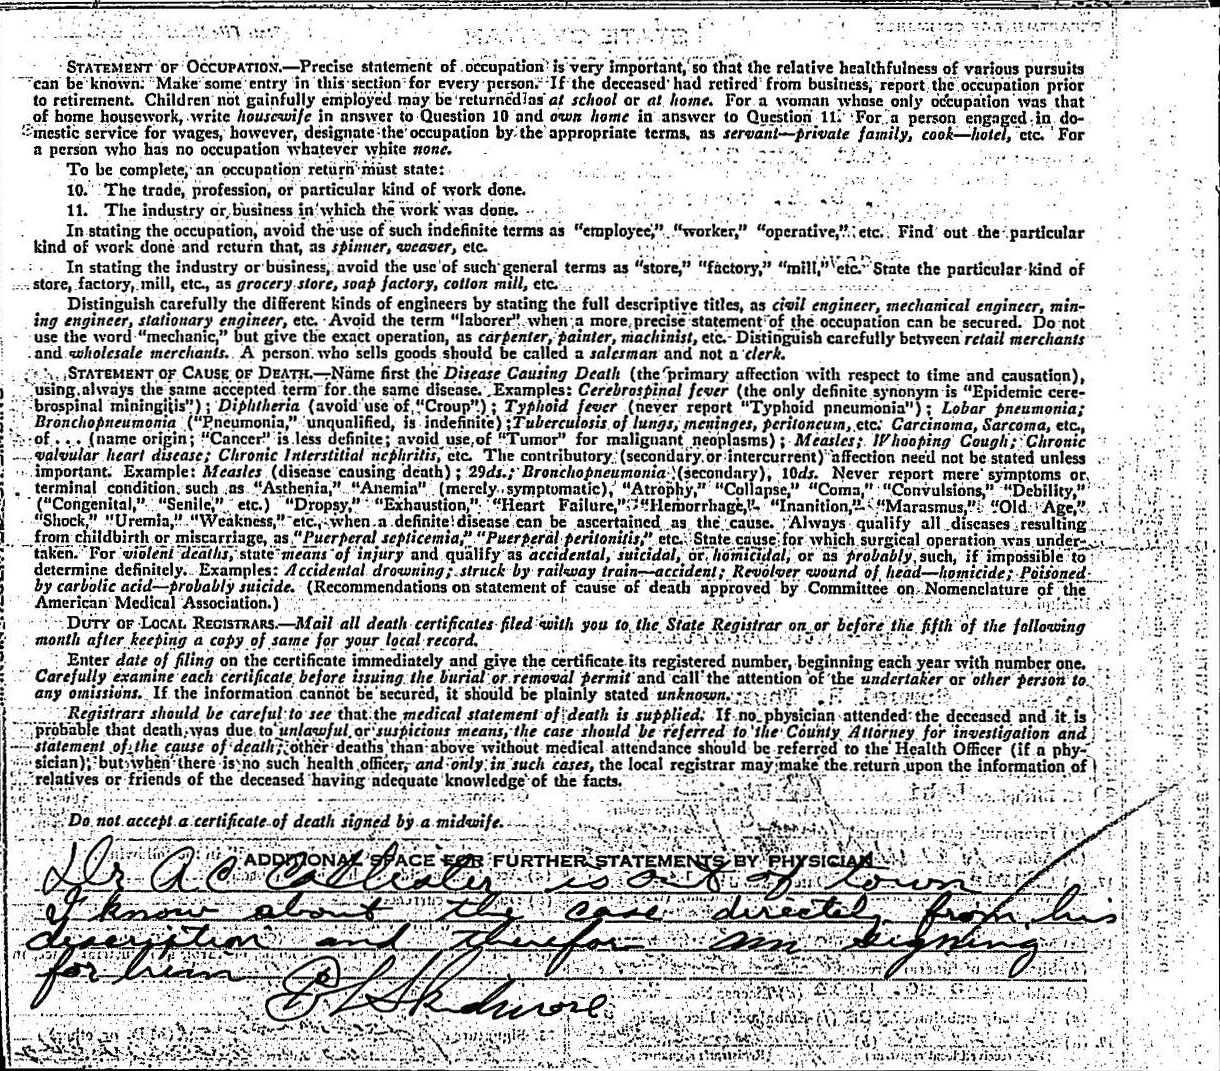 STATEMENT OF OCCUPATION.—Precise statement of occupation is very important, so that the relative healthfulness of various pursuits
can be known. Make some entry in this section for every person. If the deceased had retired from business, report the occupation prior
to retirement. Children not gainfully employed may be returned as at school or at home. For a woman whose only occupation was that
of home housework, write housewife in answer to Question 10 and own home in answer to Question 11. For a person engaged in do-
mestic service for wages, however, designate the occupation by the appropriate terms, as servant—private family, cook—hotel, etc. For
a person who has no occupation whatever white none.
To be complete, an occupation return must state:
10. The trade, profession, or particular kind of work done.
11. The industry or business in which the work was done.
In stating the occupation, avoid the use of such indefinite terms as "employee," "worker," "operative," etc. Find out the particular
kind of work done and return that, as spinner, weaver, etc.
In stating the industry or business, avoid the use of such general terms as "store," "factory," "mill," etc. State the particular kind of
store, factory, mill, etc., as grocery store, soap factory, cotton mill, etc.
Distinguish carefully the different kinds of engineers by stating the full descriptive titles, as civil engineer, mechanical engineer, min-
ing engineer, stationary engineer, etc. Avoid the term "laborer" when a more precise statement of the occupation can be secured. Do not
use the word "mechanic," but give the exact operation, as carpenter, painter, machinist, etc. Distinguish carefully between retail merchants
and wholesale merchants. A person who sells goods should be called a salesman and not a clerk.
STATEMENT OF CAUSE OF DEATH.—Name first the Disease Causing Death (the primary affection with respect to time and causation),
using always the same accepted term for the same disease. Examples: Cerebrospinal fever (the only definite synonym is "Epidemic cere-
brospinal miningitis"); Diphtheria (avoid use of "Croup"); Typhoid fever (never report "Typhoid pneumonia"); Lobar pneumonia;
Bronchopneumonia ("Pneumonia," unqualified, is indefinite); Tuberculosis of lungs, meninges, peritoneum, etc. Carcinoma, Sarcoma, etc.,
of . . . (name origin; "Cancer" is less definite; avoid use of "Tumor" for malignant neoplasms); Measles; Whooping Cough; Chronic
valvular heart disease; Chronic Interstitial nephritis, etc. The contributory (secondary or intercurrent) affection need not be stated unless
important. Example: Measles (disease causing death); 29ds.; Bronchopneumonia (secondary), 10ds. Never report mere symptoms or
terminal condition, such as "Asthenia," "Anemia" (merely symptomatic), "Atrophy," "Collapse," "Coma," "Convulsions," "Debility,"
("Congenital," "Senile," etc.) "Dropsy," "Exhaustion," "Heart Failure," "Hemorrhage," "Inanition," "Marasmus," "Old Age,"
"Shock," "Uremia," "Weakness," etc., when a definite disease can be ascertained as the cause. Always qualify all diseases resulting
from childbirth or miscarriage, as "Puerperal septicemia," "Puerperal peritonitis," etc. State cause for which surgical operation was under-
taken. For violent deaths, state means of injury and qualify as accidental, suicidal, or homicidal, or as probably such, if impossible to
determine definitely. Examples: Accidental drowning; struck by railway train—accident; Revolver wound of head—homicide; Poisoned
by carbolic acid—probably suicide. (Recommendations on statement of cause of death approved by Committee on Nomenclature of the
American Medical Association.)
DUTY OF LOCAL REGISTRARS.—Mail all death certificates filed with you to the State Registrar on or before the fifth of the following
month after keeping a copy of same for your local record.
Enter date of filing on the certificate immediately and give the certificate its registered number, beginning each year with number one.
Carefully examine each certificate before issuing the burial or removal permit and call the attention of the undertaker or other person to
any omissions. If the information cannot be secured, it should be plainly stated unknown.
Registrars should be careful to see that the medical statement of death is supplied. If no physician attended the deceased and it is
probable that death was due to unlawful or suspicious means, the case should be referred to the County Attorney for investigation and
statement of the cause of death; other deaths than above without medical attendance should be referred to the Health Officer (if a phy-
sician); but when there is no such health officer, and only in such cases, the local registrar may make the return upon the information of
relatives or friends of the deceased having adequate knowledge of the facts.
Do not accept a certificate of death signed by a midwife.
ADDITIONAL SPACE FOR FURTHER STATEMENTS BY PHYSICIAN
Dr A C Callister is out of town
I know about the case directely from his
description and therefor am signing
for him
Skidmore